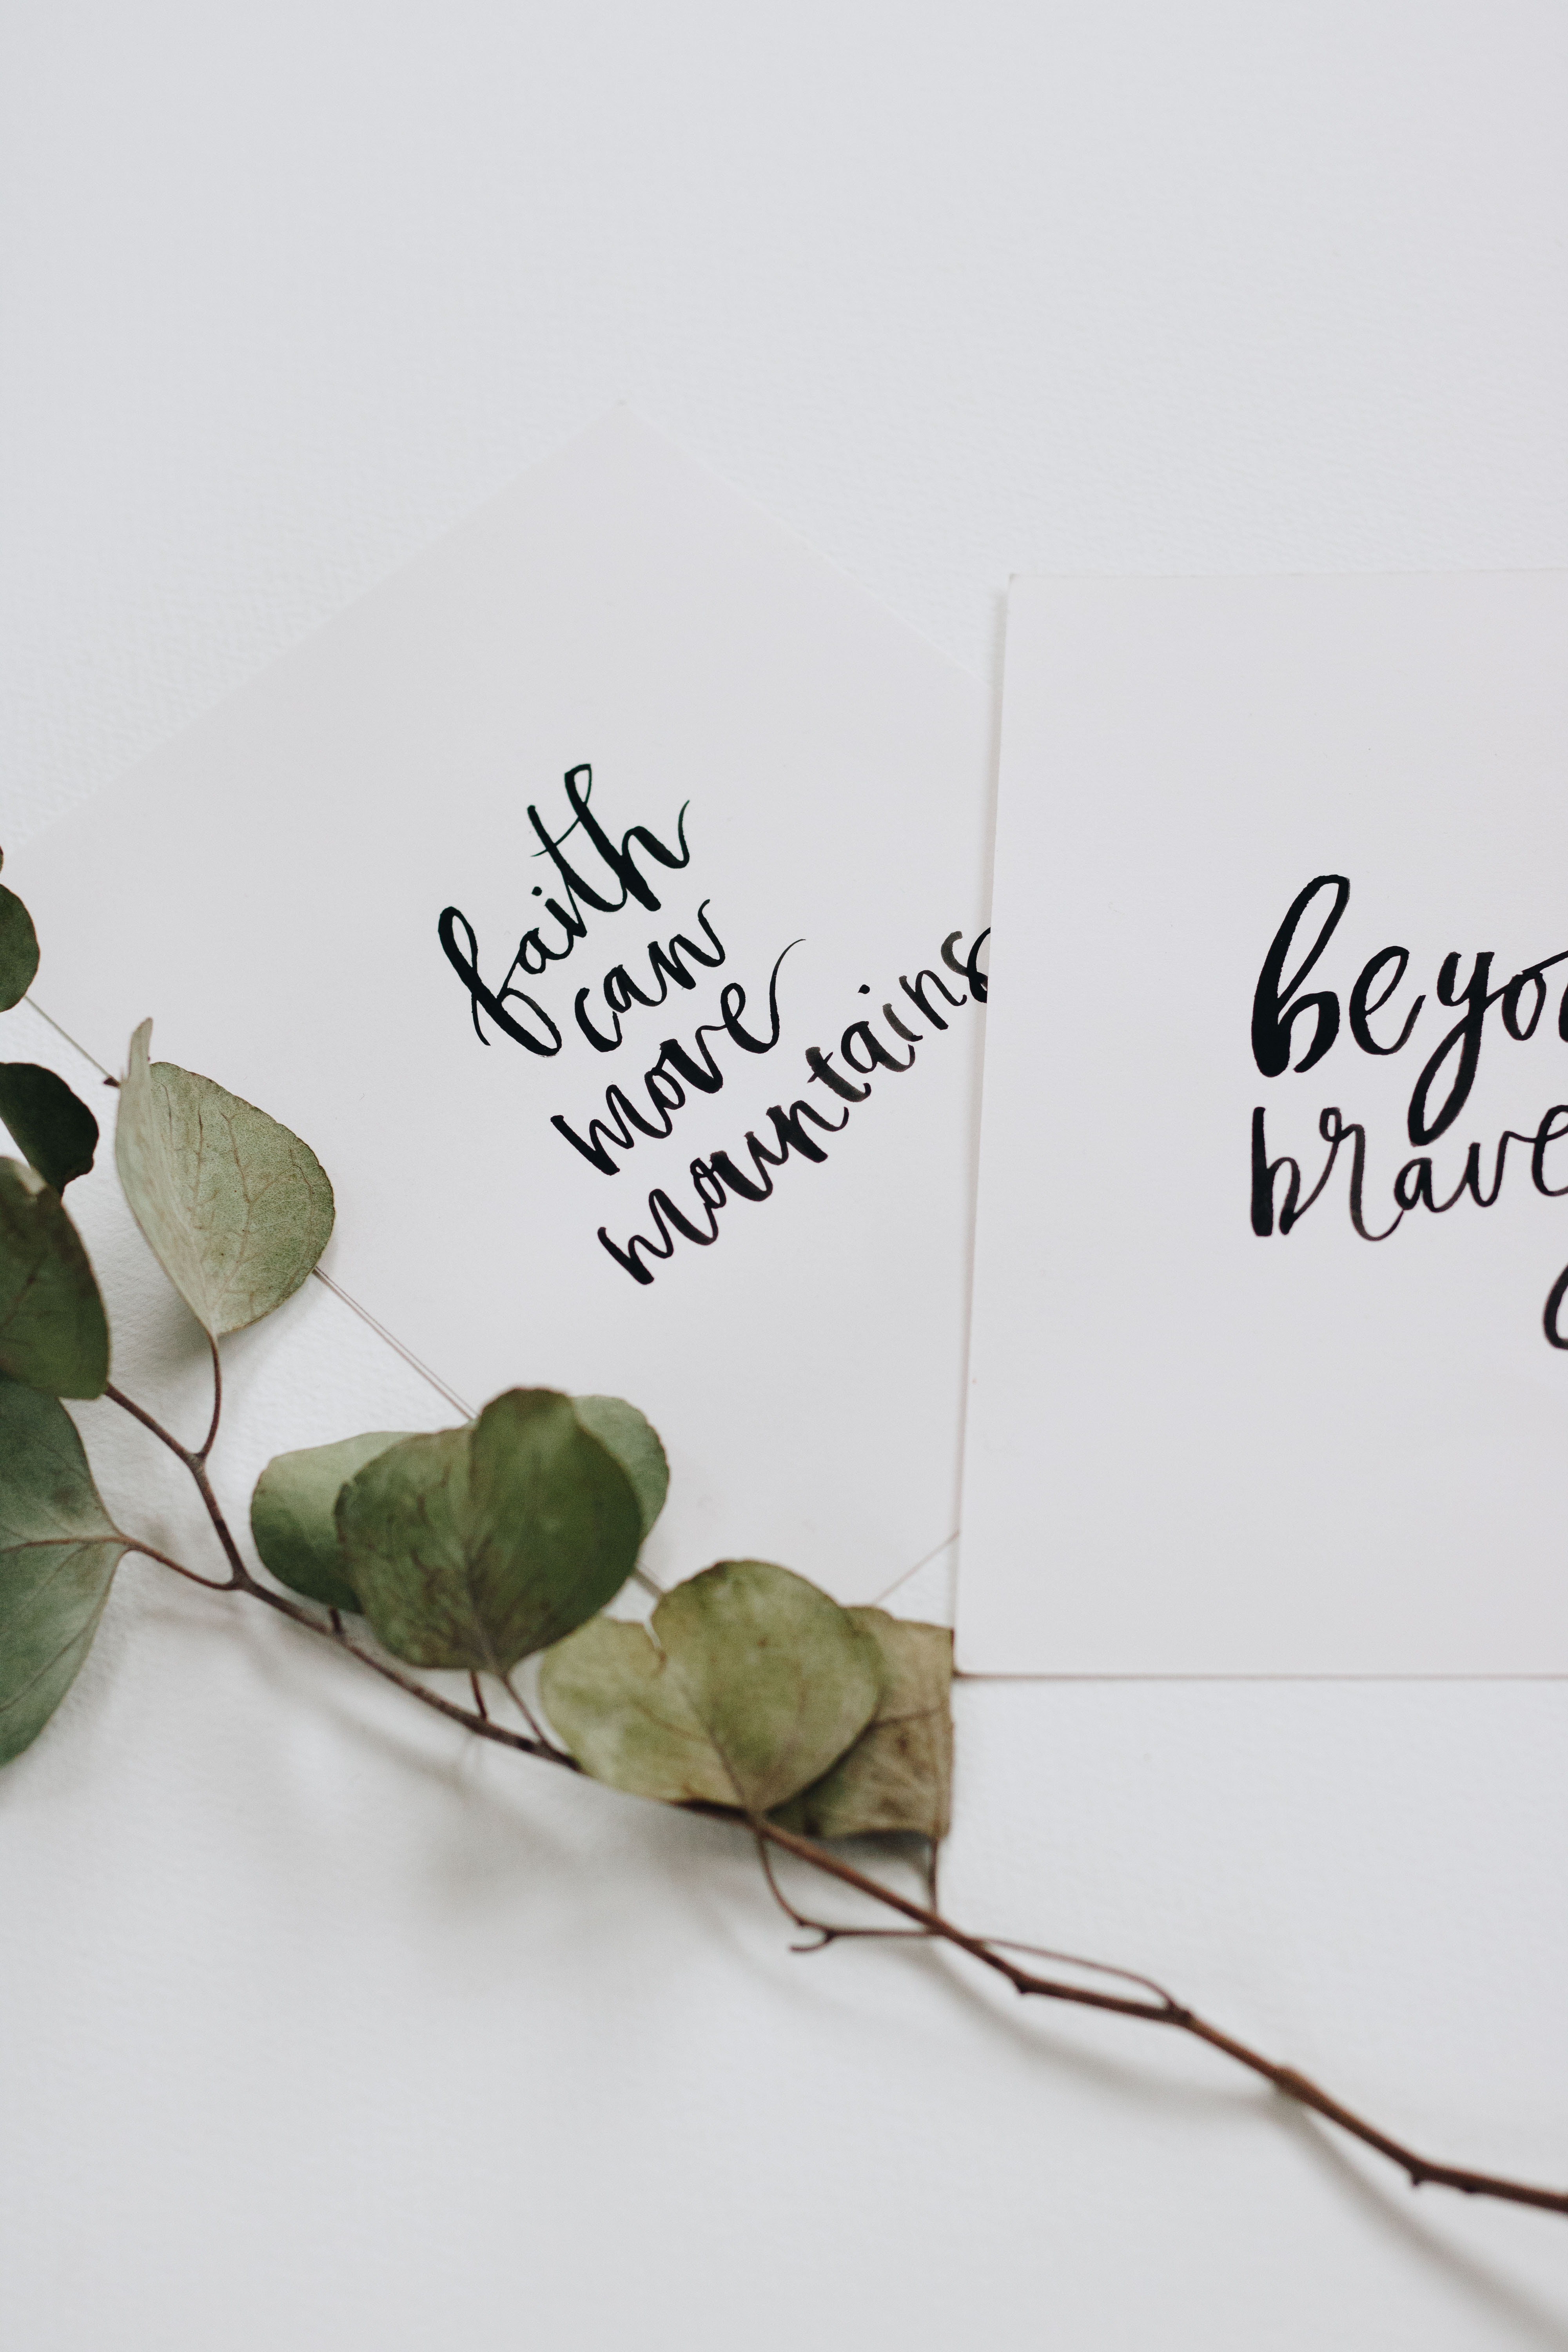 faith
can
move
mountains
brave